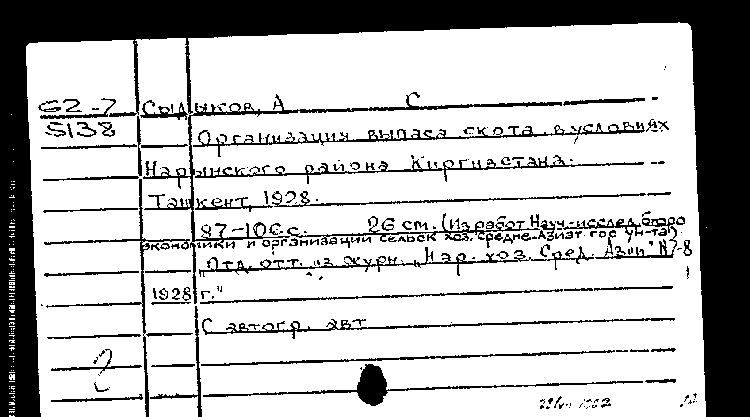 G2-7 Сыдыков, А С
5138
Организация выпаса скота в условиях
Нарынского района Киргизстана.
Ташкент, 1928.
87-106 с. 26 см. (Из работ Науч-исслед. бюро
экономики и организации сельск. хоз. Средне-Азиат. гос. ун-та)
"Отд. отт. из журн. "Нар. хоз. Сред. Азии" N7-8
1928 г."
С автогр. авт
2